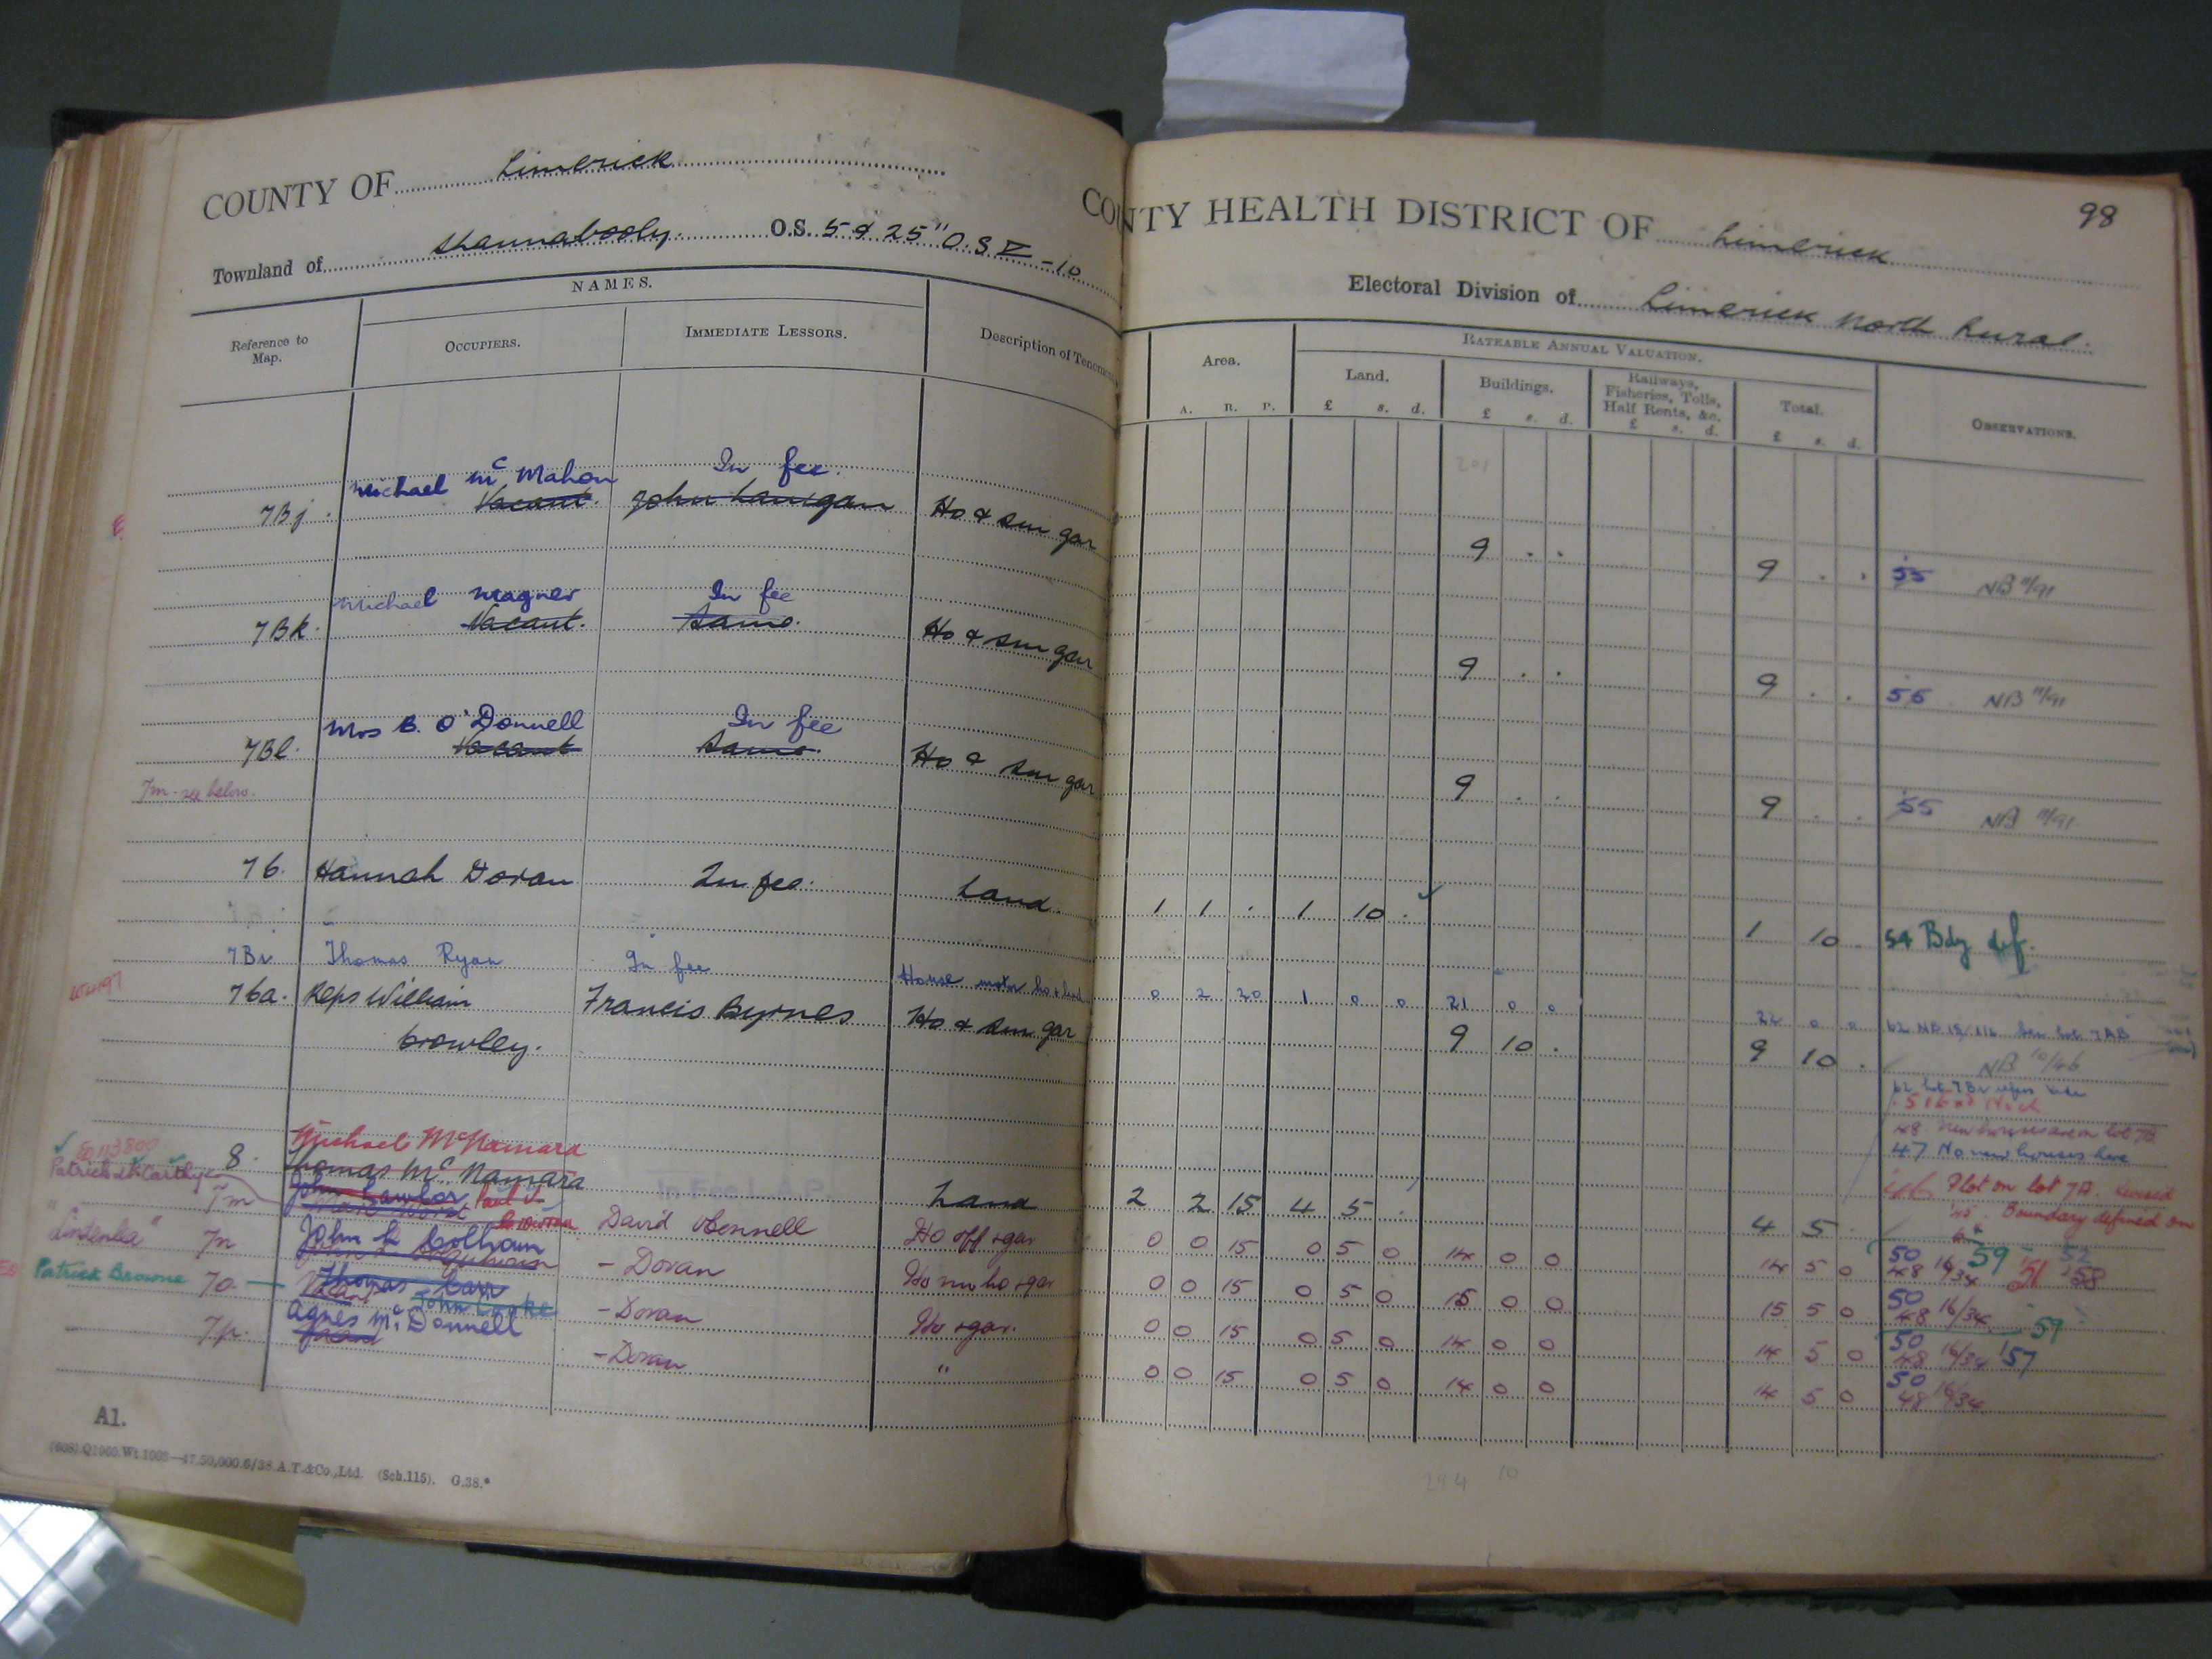 98
COUNTY OF Limerick COUNTY HEALTH DISTRICT OF Limerick
Townland of Shannabooly. O.S. 5 & 25" O.S V-10 Electoral Division of Limerick North Rural.
NAMES. RATEABLE ANNUAL VALUATION.
Reference to Map. OCCUPIERS. IMMEDIATE LESSORS. Description of Tenement Area. Land. Buildings. Railways, Fisheries, Tolls, Half Rents, &c. Total. OBSERVATIONS.
A. R. P. £ s. d. £ s. d. £ s. d. £ s. d.
201
Michael Mc Mahon In fee.
7Bj. Vacant. John Lanigan Ho & sm gar 9 . . 9 . . 55 NB 11/91
Michael Magner In fee
7Bk. Vacant. Same. Ho & sm gar 9 . . 9 . . 55 NB 11/91
Mrs B. O'Donnell In fee
7Bl. Vacant Same. Ho & sm gar 9 . . 9 . . 55 NB 11/91
7m - see below.
7b. Hannah Doran In fee. Land. 1 1 . 1 10 . 1 10 . 54 Bdy def.
7Br Thomas Ryan In fee House motor ho & land 0 2 20 1 0 0 21 0 0 22 0 0
7ba. Reps William Crowley. Francis Byrnes Ho & sm gar 9 10 . 9 10 . NB 10/46
48 New houses are on lot 7B
47 No new houses here
Michael McNamara
8. Thomas Mc Namara Land 2 2 15 4 5 . 4 5 . Plot on lot 7A. Revised
Boundary defined on
Patrick McCarthy
7m John Lawlor Paul J. David O'Connell Ho off & gar 0 0 15 0 5 0 14 0 0 14 5 0 50 48 16/34 59 51 52 58
"Lindenlea" 7n John G Colhoun - Doran Ho mo ho & gar 0 0 15 0 5 0 15 0 0 15 5 0 50 48 16/34 59
Patrick Browne 7o Thomas Carr Vacant John Cooke - Doran Ho & gar. 0 0 15 0 5 0 14 0 0 14 5 0 50 48 16/34 57
7p. Agnes Mc Donnell Vacant - Doran " 0 0 15 0 5 0 14 0 0 14 5 0 50 48 16/34
294 10
A1.
(608).Q1969.Wt.1003—47.50,000.6/38.A.T.&Co.,Ltd. (Sch.115). G.38.*